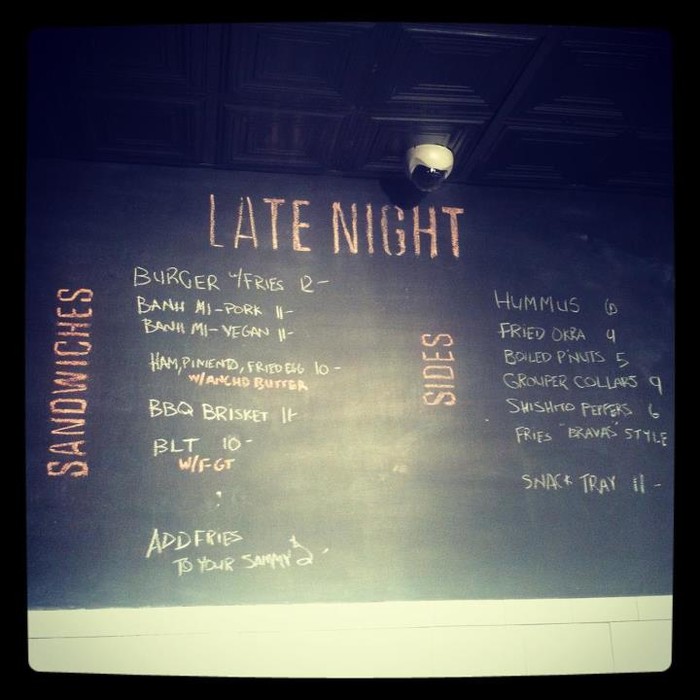 LATE NIGHT
SANDWICHES
BURGER W/FRIES 12-
BANH MI-PORK 11-
BANH MI-VEGAN 11-
HAM, PIMENTO, FRIED EGG 10-
W/ANCHO BUTTER
BBQ BRISKET 11-
BLT 10-
W/F-GT
ADD FRIES
TO YOUR SAMMY 2
SIDES
HUMMUS 6
FRIED OKRA 4
BOILED P'NUTS 5
GROUPER COLLARS 9
SHISHITO PEPPERS 6
FRIES "BRAVAS" STYLE
SNACK TRAY 11-